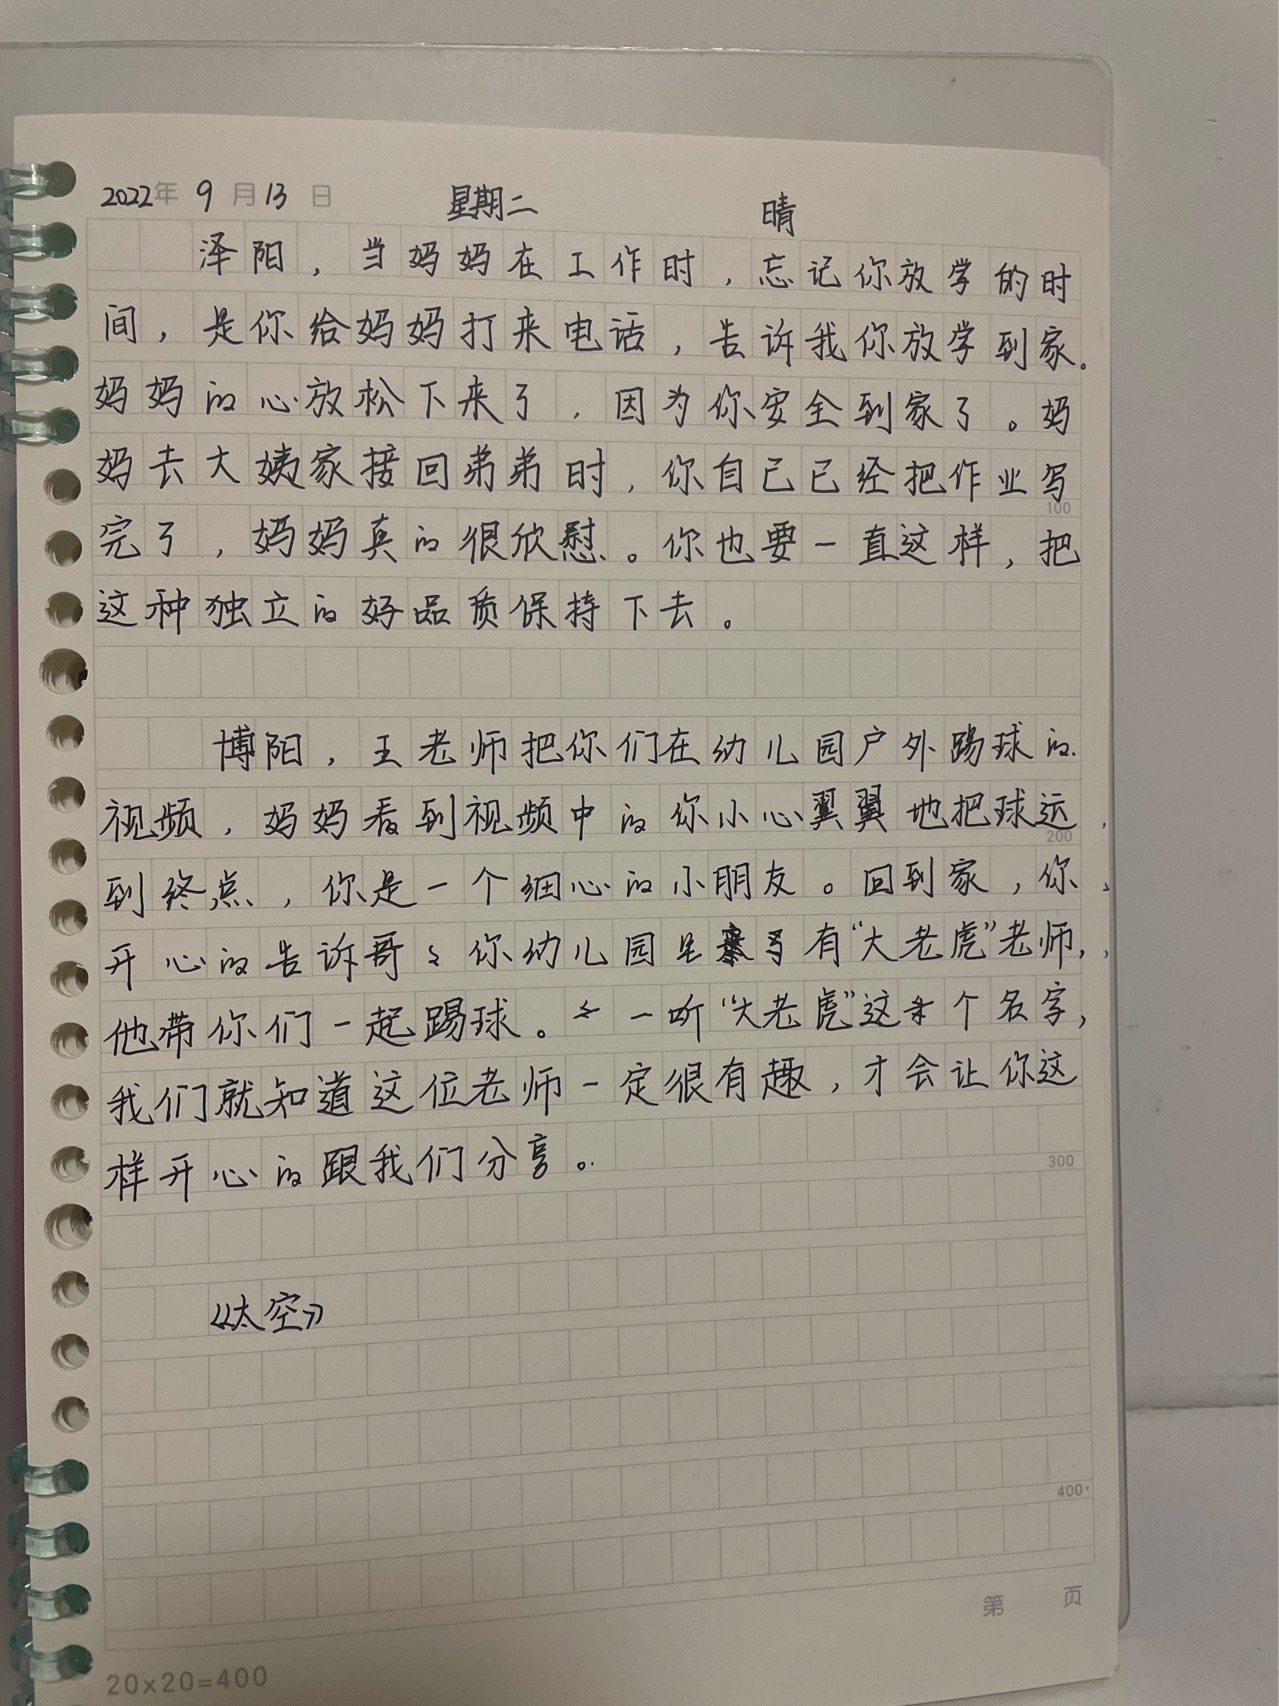 2022年 9月13日 星期二 晴
泽阳，当妈妈在工作时，忘记你放学的时
间，是你给妈妈打来电话，告诉我你放学到家。
妈妈的心放松下来了，因为你安全到家了。妈
妈去大姨家接回弟弟时，你自己已经把作业写
100
完了，妈妈真的很欣慰。你也要一直这样，把
这种独立的好品质保持下去。
博阳，王老师把你们在幼儿园户外踢球的
视频，妈妈看到视频中的你小心翼翼地把球运
200
到终点，你是一个细心的小朋友。回到家，你
开心的告诉哥々你幼儿园里有“大老虎”老师，
他带你们一起踢球。一听“大老虎”这个名字，
我们就知道这位老师一定很有趣，才会让你这
样开心的跟我们分享。
300
《太空》
400
第 页
20×20=400